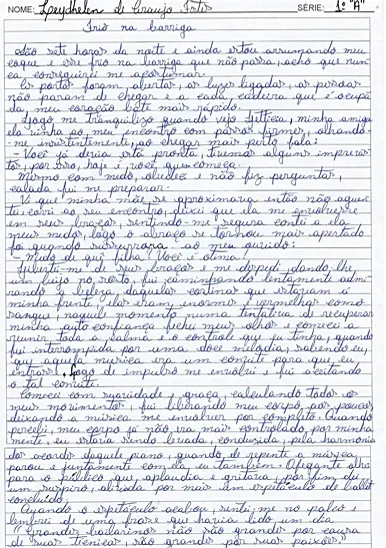 NOME: Leydhelen de Araujo Fortes SÉRIE: 1º "A"
Frio na barriga
São sete horas da noite e ainda estou arrumando meu
coque e esse frio na barriga que não passa, acho que nun-
ca, conseguirei me acostumar.
As portas foram abertas, as luzes ligadas, as pessoas
não param de chegar e a cada cadeira que é ocupa
da meu coração bate mais rápido.
Logo me tranquilizo quando vejo Letícia, minha amiga
ela vinha ao meu encontro com passos firmes, olhando-
-me insistentemente, ao chegar mais perto fala:
- Você já deveria está pronta, tivemos alguns imprevis
tos, por isso, hoje é você quem começa.
Mesmo com medo, obedeci e não fiz perguntas,
calada fui me preparar.
Vi que minha mãe se aproximava então não aguen
tei, corri ao seu encontro, deixei que ela me envolvesse
em seus braços, sentindo-me segura contei a ela
meus medos, logo o abraço se tornou mais apertado
foi quando sussurrara ao meu ouvido:
- Medo de quê filha? Você é ótima!
Libertei-me de seus braços e me despedi dando lhe
um beijo no rosto, fui caminhando lentamente admi-
rando a beleza daquelas cortinas que estavam a
minha frente, elas eram enormes e vermelhas como
sangue, naquele momento numa tentativa de recuperar
minha auto confiança fechei meus olhos e comecei a
reunir toda a calma e o controle que eu tinha, quando
fui interrompida por uma doce melodia, sabendo eu,
que naquela música era um convite para que eu
entrasse, logo de impulso me envolvi e fui aceitando
o tal convite.
Comecei com suavidade, graça, calculando todos os
meus movimentos, fui liberando meu corpo aos poucos,
deixando a música me envolver por completo. Quando
percebi, meu corpo já não era mais controlado, por minha
mente, eu estava sendo levada, conduzida, pela harmonia
dos acordes daquele piano, quando, de repente a música
parou e juntamente com ela, eu também. Ofegante olho
para o público que aplaudia e gritava, por fim dei
um suspiro, aliviada por mais um espetáculo de ballet
concluído.
Quando o espetáculo acabou, sentei-me no palco e
lembrei de uma frase que havia lido um dia
"Grandes bailarinos não são grandes por causa
de suas técnicas, são grandes por suas paixões."